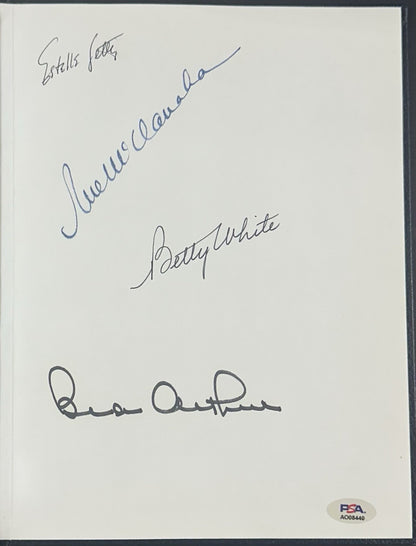 Estelle Getty
Rue McClanahan
Betty White
Bea Arthur
PSA
AO08440